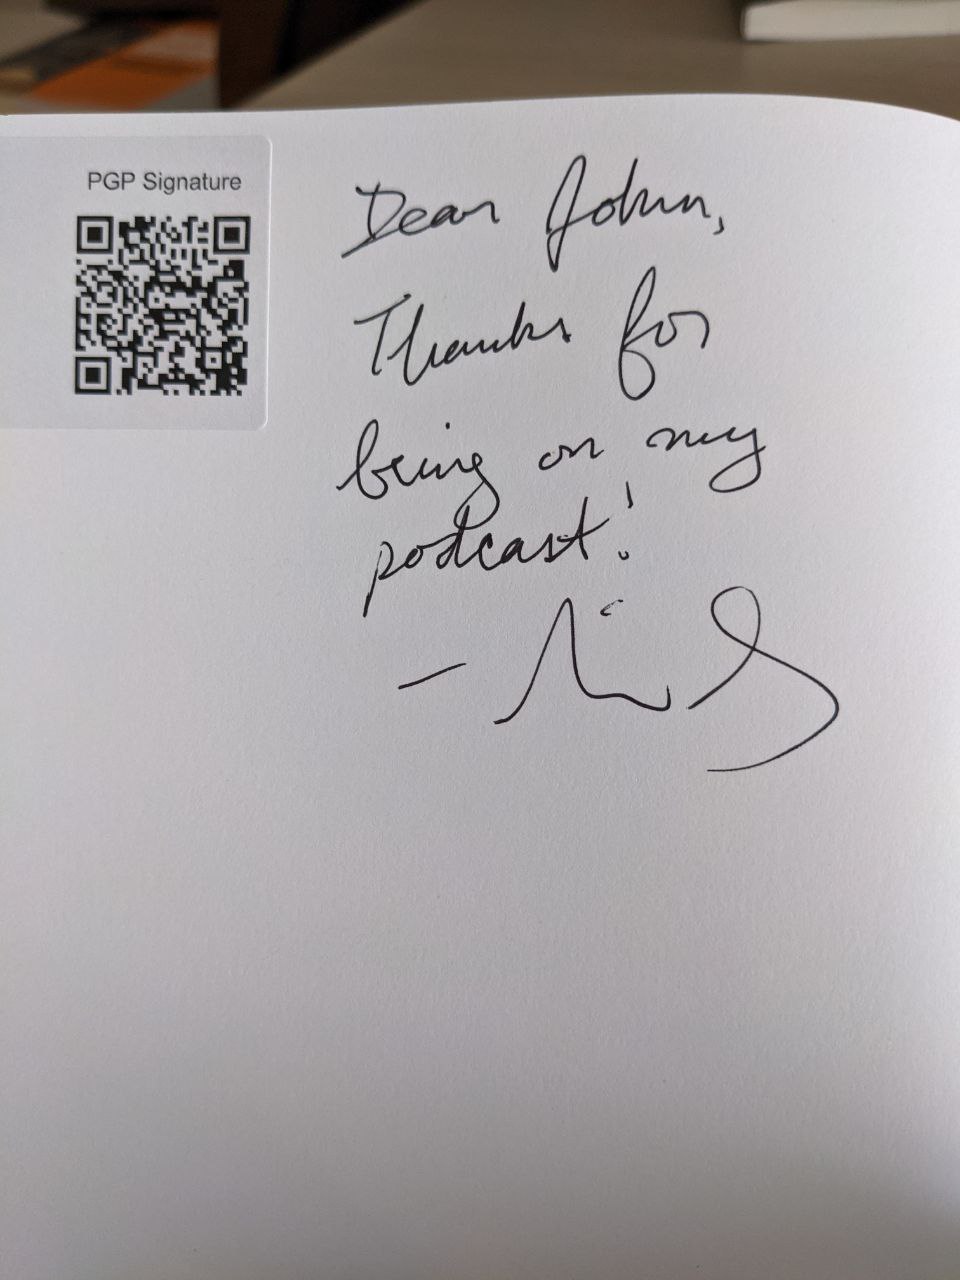 PGP Signature
Dear John,
Thanks for
being on my
podcast!